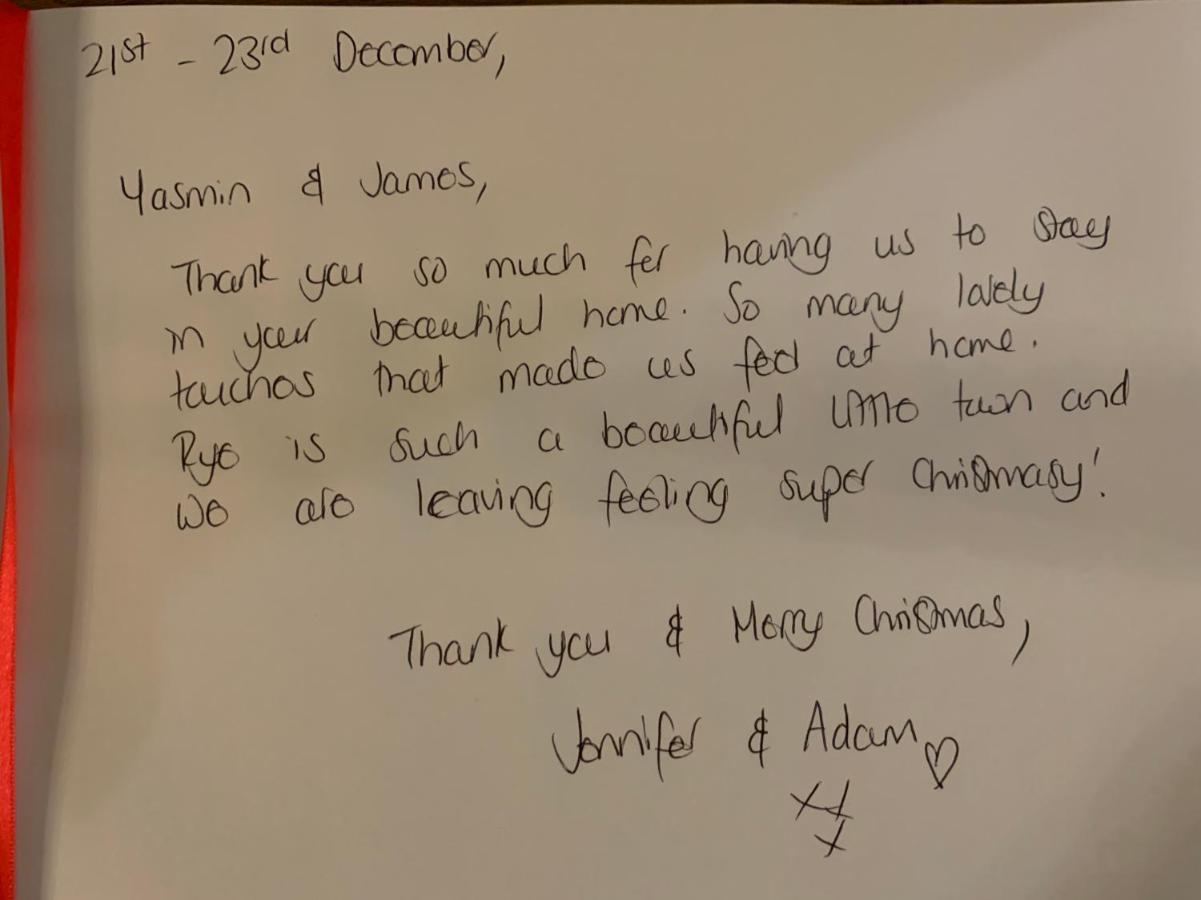 21st - 23rd December,
Yasmin & James,
Thank you so much for having us to stay
in your beautiful home. So many lovely
touches that made us feel at home.
Rye is such a beautiful little town and
we are leaving feeling super Christmasy!
Thank you & Merry Christmas,
Jennifer & Adam ♡
xx
x